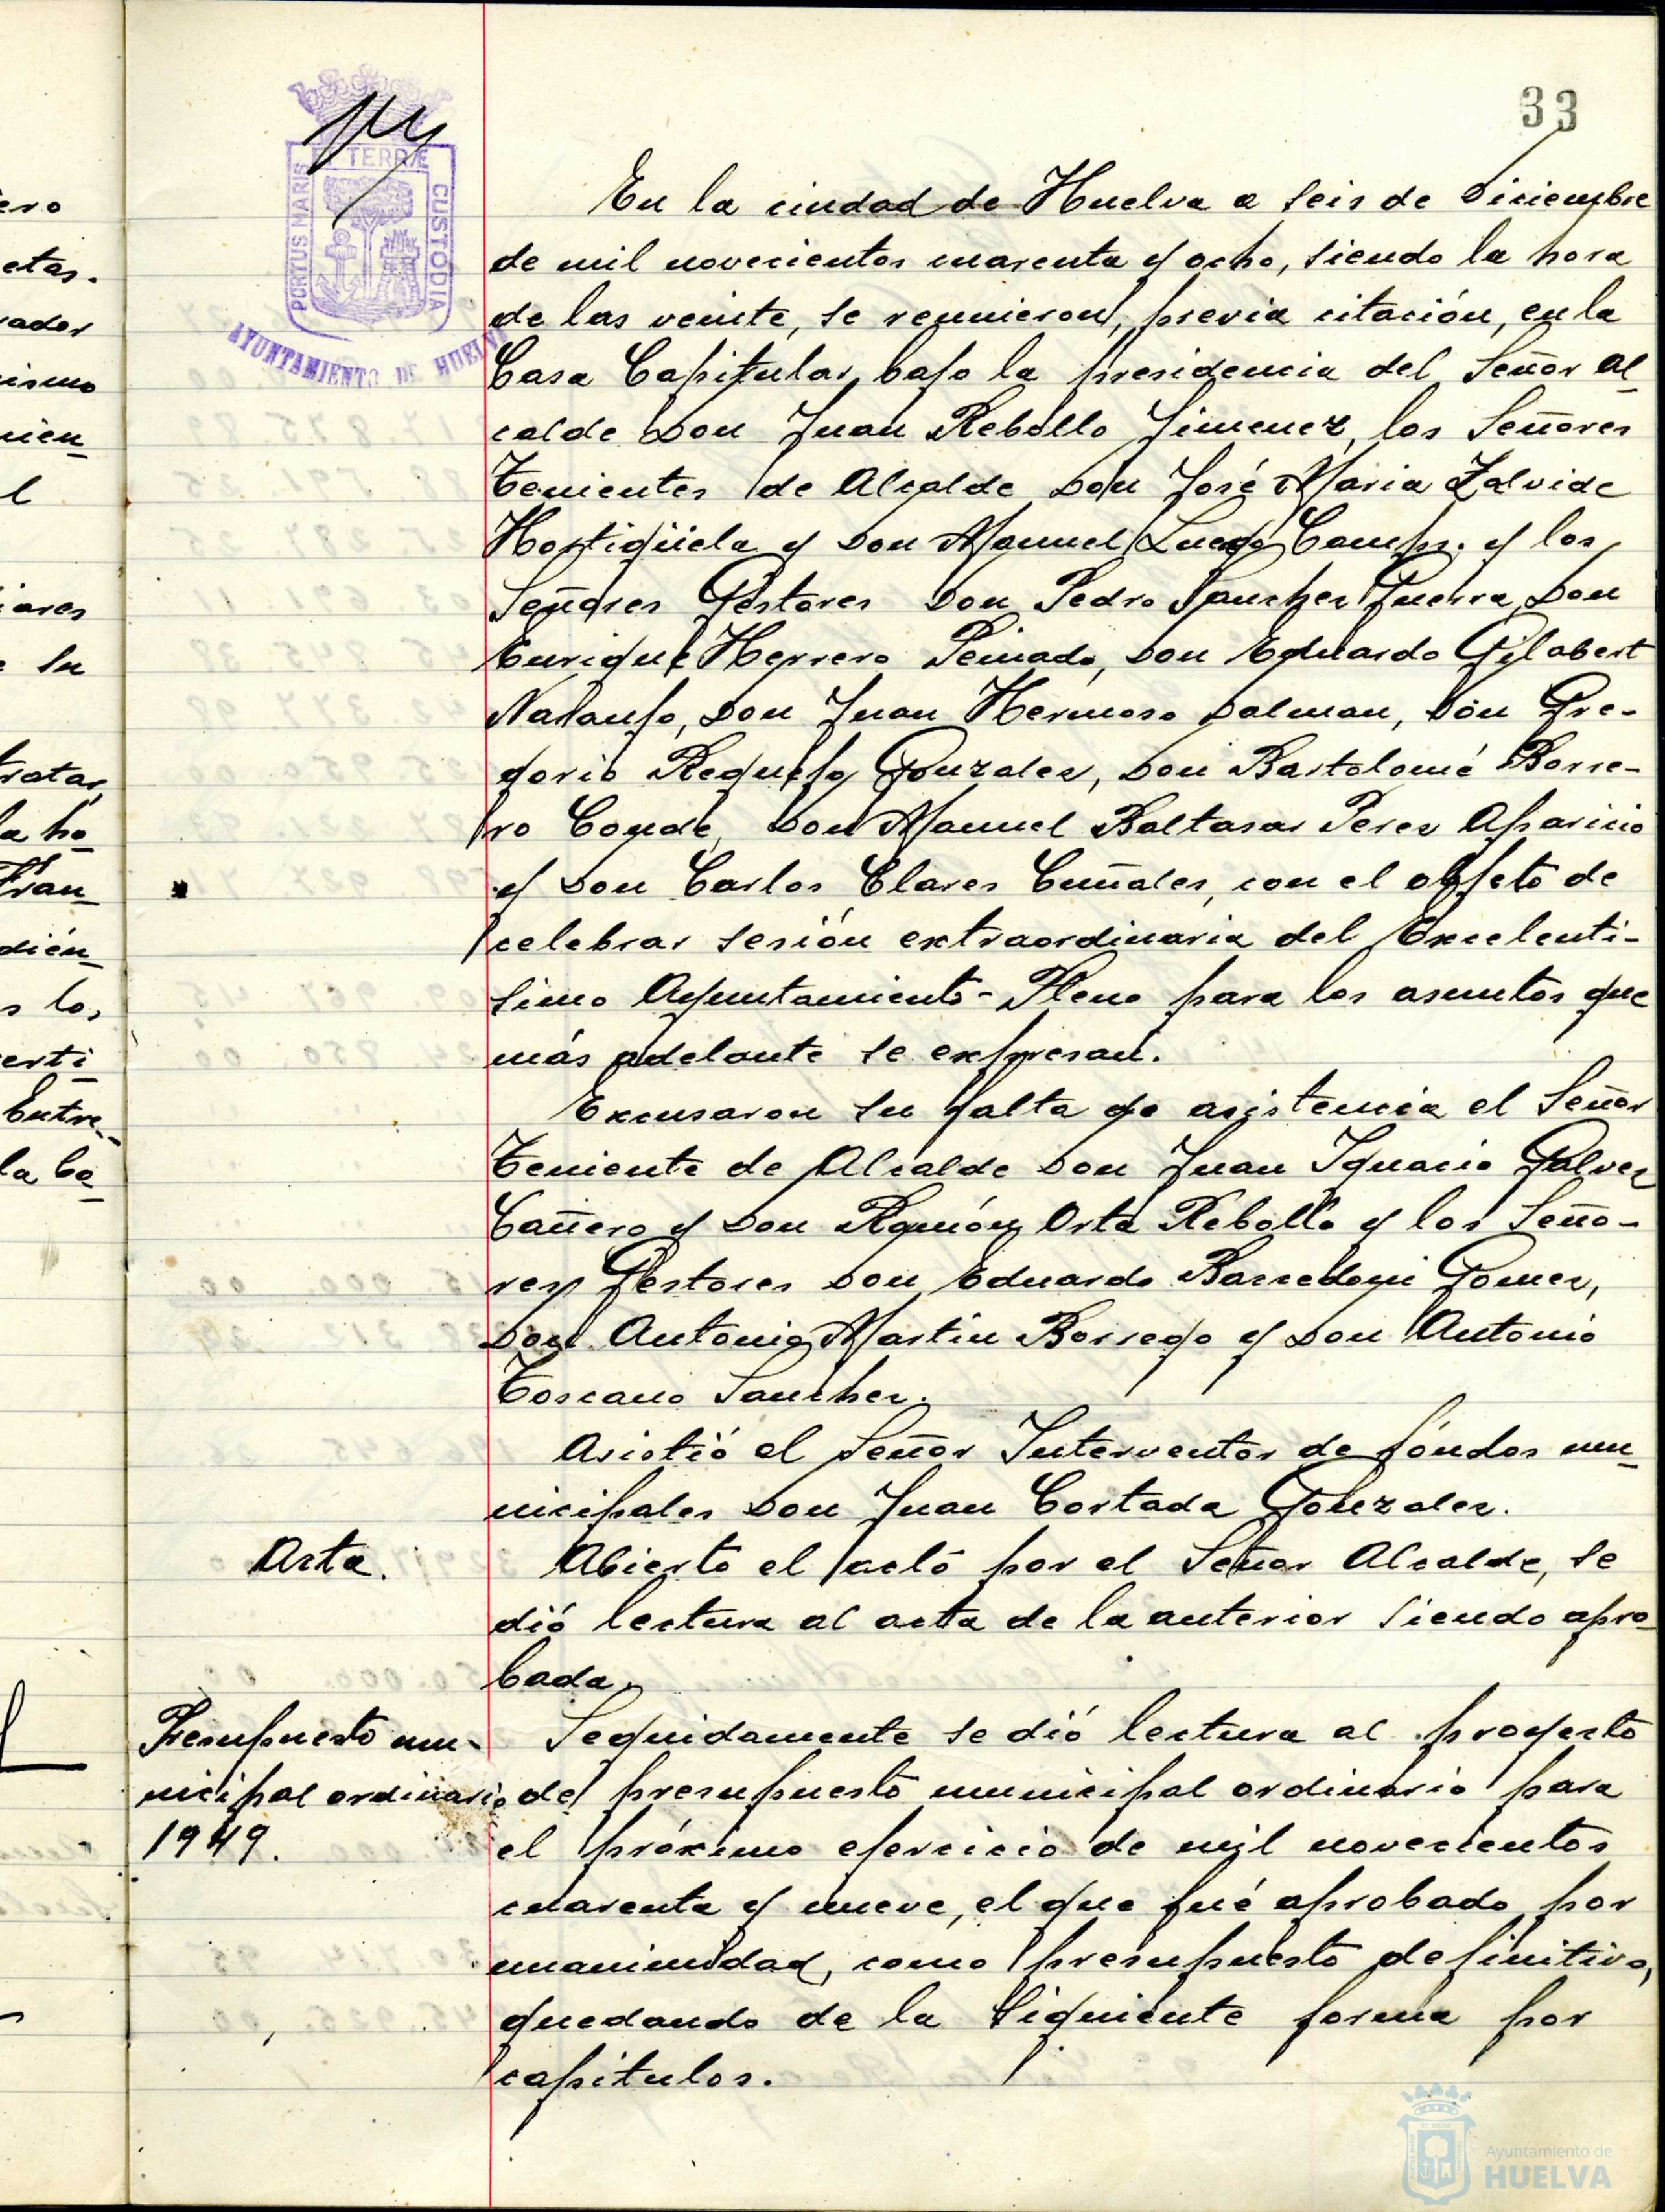 33
PORTUS MARIS
ET TERRÆ
CUSTODIA
AYUNTAMIENTO DE HUELVA
En la ciudad de Huelva a seis de Diciembre
de mil novecientos cuarenta y ocho, siendo la hora
de las veinte, se reunieron, previa citación, en la
Casa Capitular, bajo la presidencia del Señor Al
calde Don Juan Rebollo Jimenez, los Señores
Tenientes de Alcalde Don José Maria Zalvide
Hortigüela y Don Manuel Luego Camps. y los
Señores Gestores Don Pedro Sanchez Guerra, Don
Enrique Herrero Peinado, Don Eduardo Gilabert
Naranjo, Don Juan Hermoso Dalman, Don Gre-
gorio Requejo Gonzalez, Don Bartolomé Borre-
ro Conde, Don Manuel Baltasar Perez Aparicio
y Don Carlos Clares Cuñales, con el objeto de
celebrar sesión extraordinaria del Excelenti-
simo Ayuntamiento-Pleno para los asuntos que
más adelante se expresan.
Excusaron su falta de asistencia el Señor
Teniente de Alcalde Don Juan Ignacio Galvez
Cañero y Don Ramón Orta Rebollo y los Seño-
res Gestores Don Eduardo Barcelona Gomez,
Don Antonio Martin Borrego y Don Antonio
Toscano Sanchez.
Asistió el Señor Interventor de fondos mu
nicipales Don Juan Cortada Gonzalez.
Acta.
Abierto el acto por el Señor Alcalde, se
dió lectura al acta de la anterior siendo apro
bada.
Presupuesto mu-
nicipal ordinario
1949.
Seguidamente se dió lectura al proyecto
de presupuesto municipal ordinario para
el próximo ejercicio de mil novecientos
cuarenta y nueve, el que fué aprobado por
unanimidad, como presupuesto definitivo,
quedando de la siguiente forma por
capitulos.
Ayuntamiento de
HUELVA